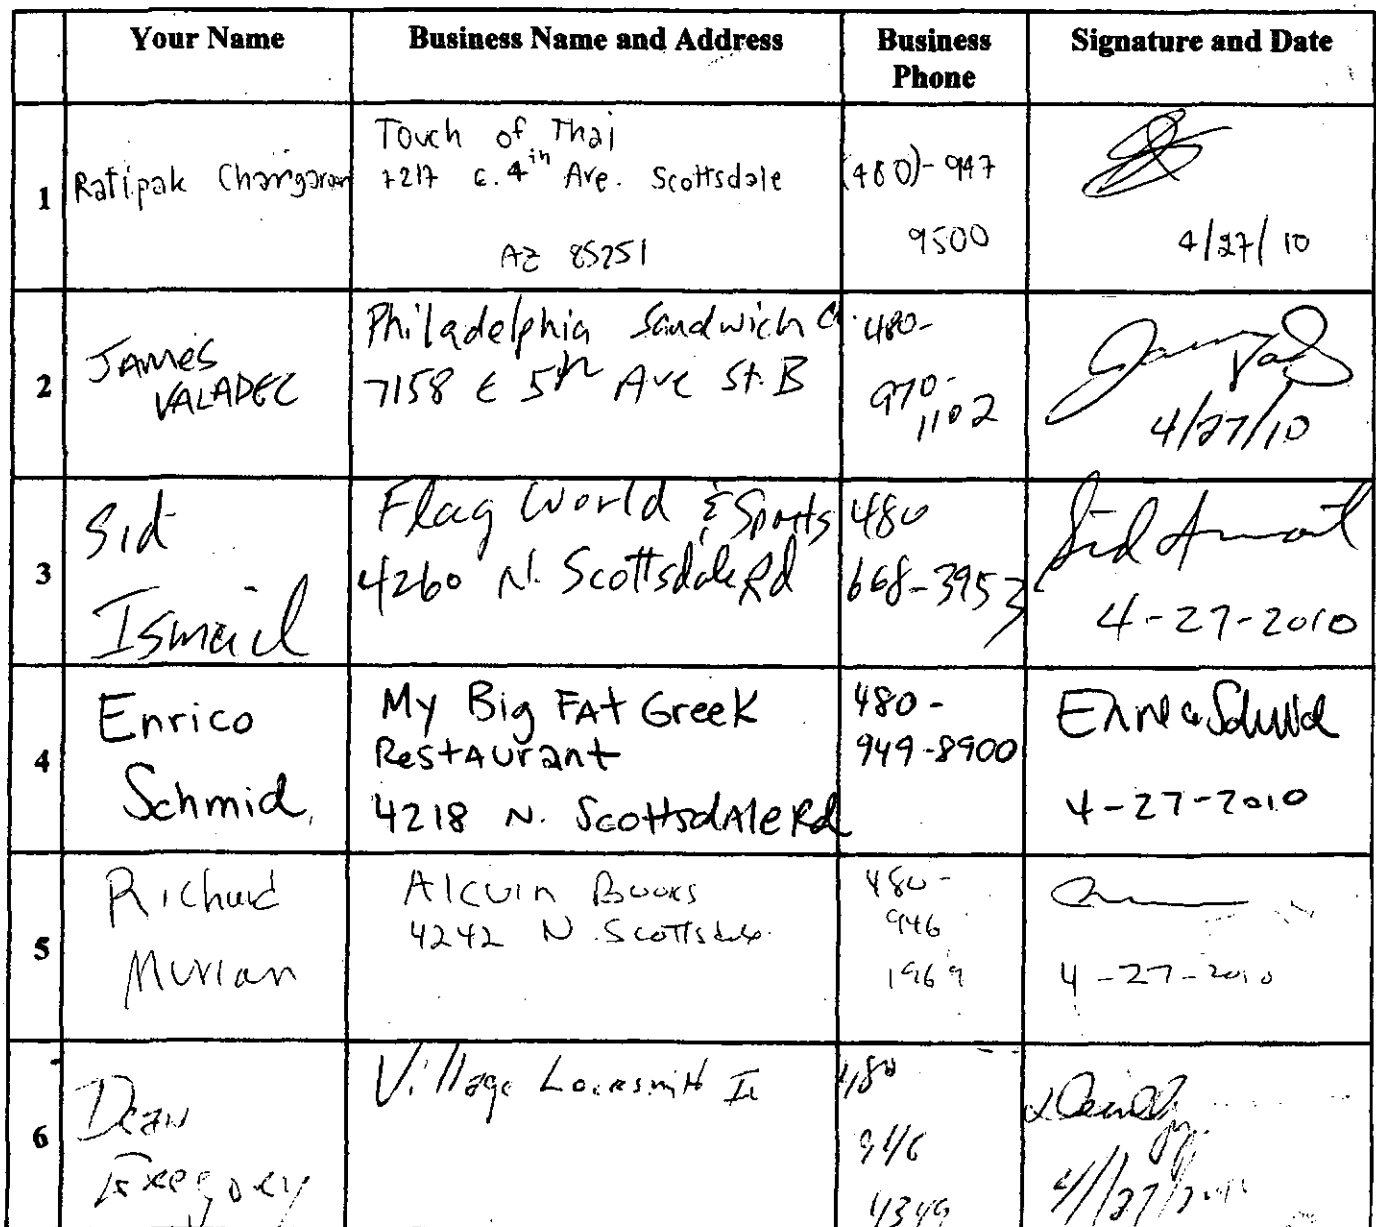 Your Name
Business Name and Address
Business
Phone
Signature and Date
1
Ratipak
Touch of Thai
7217 E. 4th Ave. Scottsdale
AZ 85251
(480)-947
9500
4/27/10
2
JAMES
VALADEZ
Philadelphia Sandwich Co.
7158 E 5th Ave St. B
480-
970-
1102
4/27/10
3
Sid
Ismail
Flag World & Sports
4260 N. Scottsdale Rd
480
668-3953
4-27-2010
4
Enrico
Schmid
My Big FAt Greek
RestAurant
4218 N. ScottsdAle Rd
480-
949-8900
4-27-2010
5
Richard
Murian
Alcuin Books
4242 N. Scottsdale
480-
946
1969
4-27-2010
6
Dean
Gregory
Village Locksmith
480
946
4349
4/27/2010